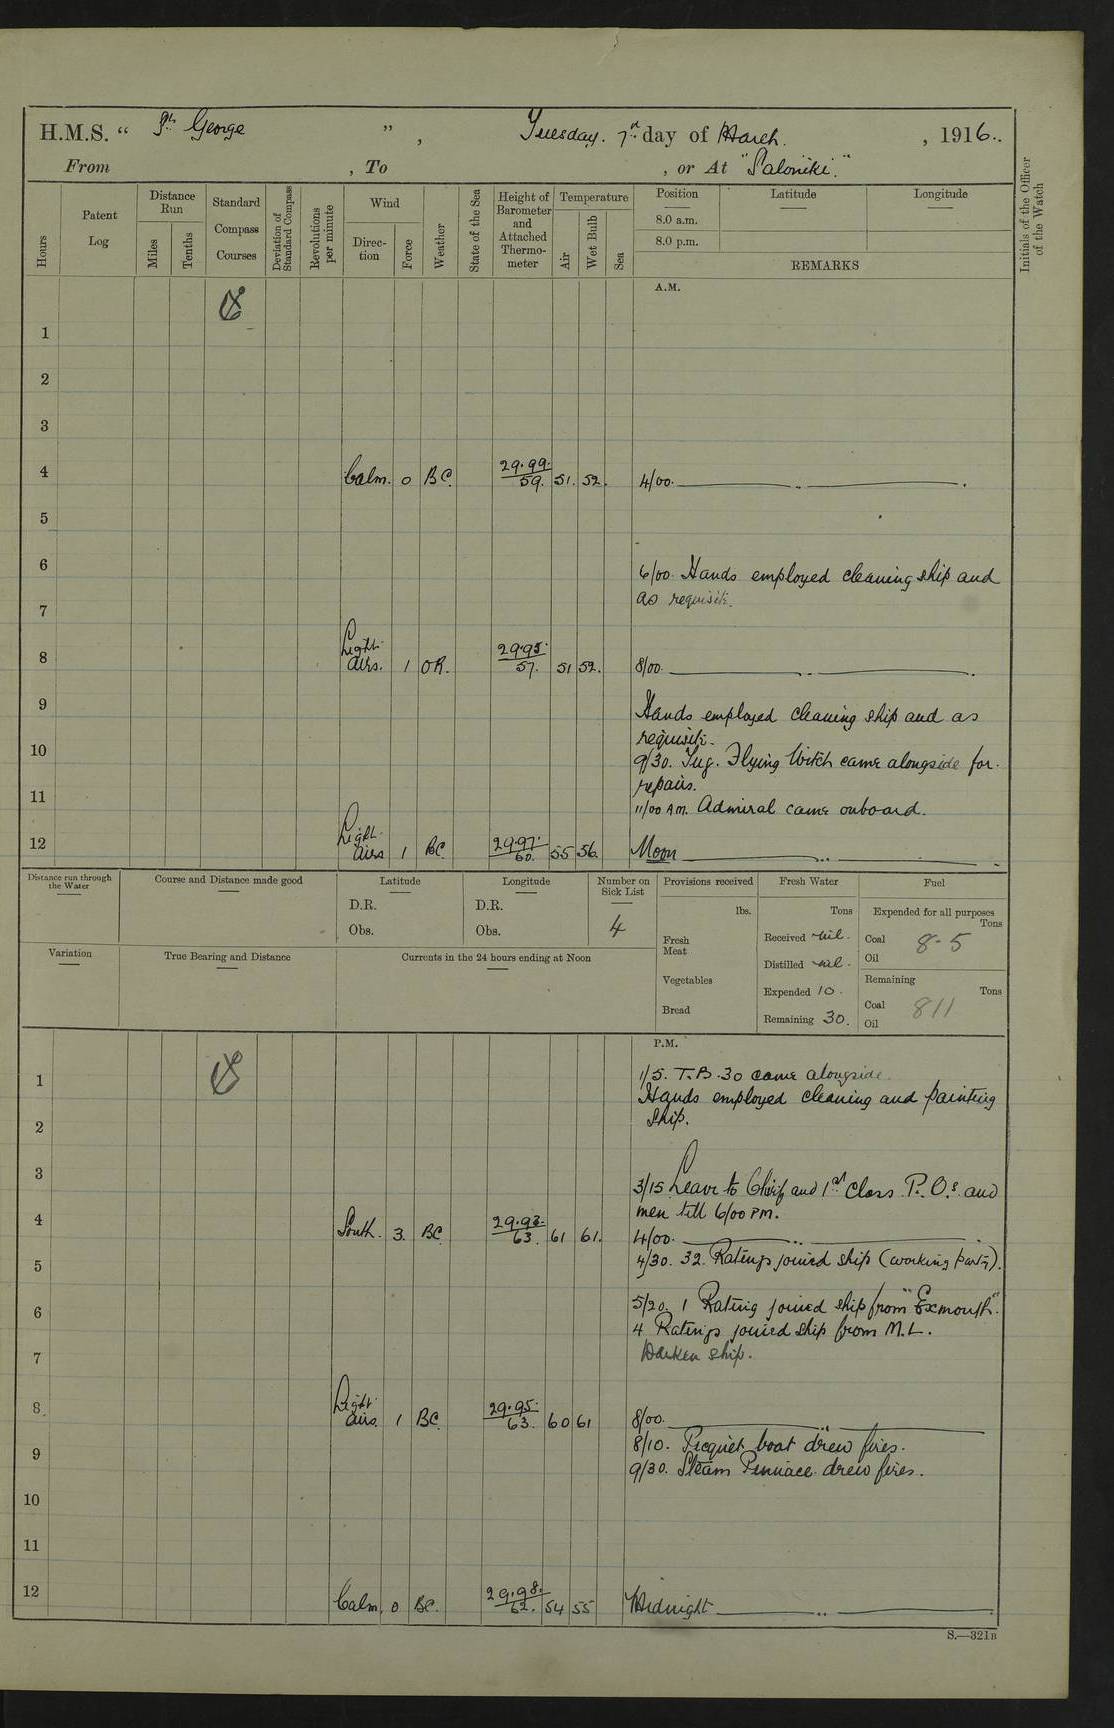 H.M.S. “ St. George ” , Tuesday. 7th day of March. , 1916.
From , To , or At "Saloniki".
Hours
Patent Log
Distance Run
Miles
Tenths
Standard Compass Courses
Deviation of Standard Compass
Revolutions per minute
Wind
Direc-tion
Force
Weather
State of the Sea
Height of Barometer and Attached Thermo-meter
Temperature
Air
Wet Bulb
Sea
Position
8.0 a.m.
8.0 p.m.
Latitude
Longitude
REMARKS
Initials of the Officer of the Watch
A.M.
1
2
3
4 Calm. 0 BC. 29.99. 59. 51. 52. 4/00.
5
6 6/00. Hands employed cleaning ship and
as requisite.
7
8 Light airs. 1 OR. 29.95. 57. 51 52. 8/00.
9 Hands employed cleaning ship and as
requisite.
10 9/30. Tug. Flying Witch came alongside for
repairs.
11 11/00 AM. Admiral came onboard.
12 Light airs 1 BC. 29.97. 60. 55 56. Noon
Distance run through the Water
Course and Distance made good
Latitude
D.R.
Obs.
Longitude
D.R.
Obs.
Number on Sick List
4
Provisions received
lbs.
Fresh Meat
Vegetables
Bread
Fresh Water
Tons
Received nil.
Distilled nil.
Expended 10.
Remaining 30.
Fuel
Expended for all purposes
Tons
Coal 8.5
Oil
Remaining
Tons
Coal 811
Oil
Variation
True Bearing and Distance
Currents in the 24 hours ending at Noon
P.M.
1 1/5. T.B. 30 came alongside.
Hands employed cleaning and painting
2 ship.
3 3/15 Leave to Chief and 1st Class P.O.s and
men till 6/00 PM.
4 South. 3. BC. 29.93. 63. 61 61. 4/00.
4/30. 32. Ratings joined ship (working party).
5
5/20. 1 Rating joined ship from "Exmouth".
6 4 Ratings joined ship from M.L.
7 Darken ship.
8 Light airs. 1 BC. 29.95. 63. 60 61 8/00.
8/10. Picquet boat drew fires.
9 9/30. Steam Pinnace drew fires.
10
11
12 Calm. 0 BC. 29.98. 62. 54 55 Midnight
S.—321B